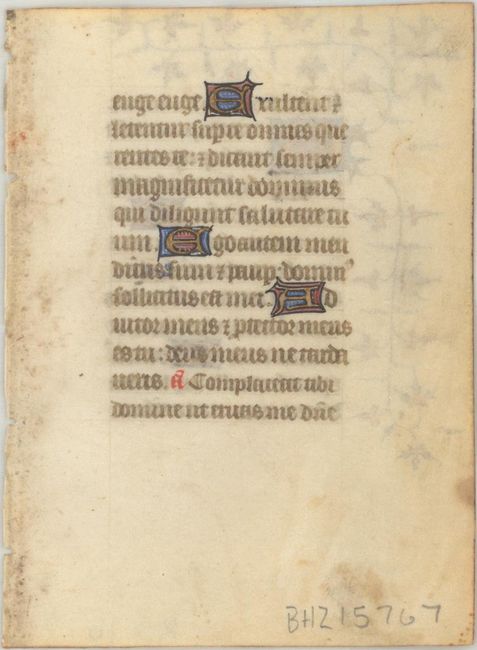 euge euge Exultent ⁊
letentur super te omnes que
rentes te: ⁊ dicant semper
magnificetur dominus
qui diligunt salutare tu
um Ego autem men
dicus sum ⁊ paup: domin'
sollicitus est mei. Ad
iutor meus ⁊ ꝓtector meus
es tu: deus meus ne tarda
ueris. a Complaceat tibi
domine ut eruas me dñe
BHZ15767